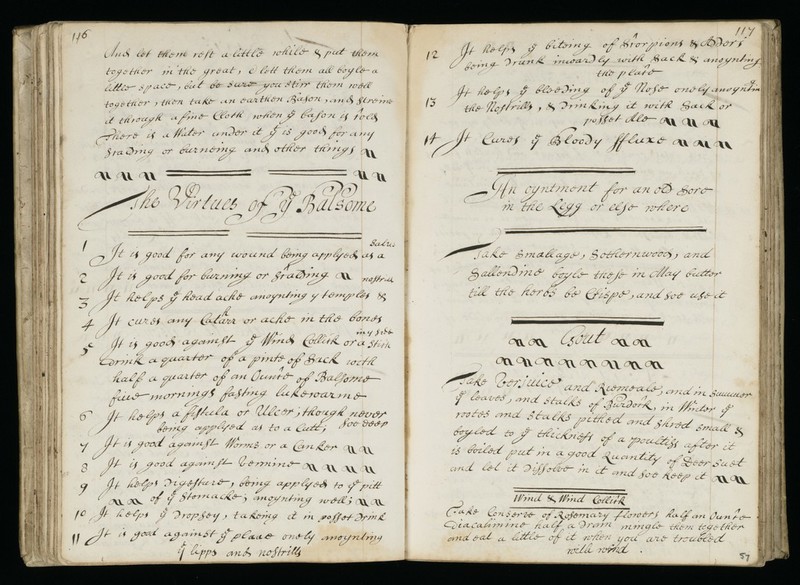 116
And let them rest a little while & put them
together in the great, & lett them all boyle a
little space, but be sure you stirr them well
together, then take an earthen Bason, and streine
it through a fine Cloth when ye bason is cold
There is a Water under it yt is good for any
Scalding or burneing and other things
The Virtues of ye Balsome
1 It is good for any wound being applyed as a Salve
2 It is good for burning or Scalding
3 It helps ye head ache anoynting ye temples & nostrills
4 It cures any Catarr or ache in the bones
5 It is good against ye Wind Collick or a Stich in ye side
Drink a quarter of a pinte of Sack with
half a quarter of an Ounce of Balsome
five mornings fasting lukewarme
6 It helps a fistula or Ulcer; though never soe deep
being applyed as to a Cutt;
7 It is good against Wormes or a Canker
8 It is good against Vermine
9 It helps Digesture, being applyed to ye pitt
of ye Stomacke; anoynting well;
10 It helps ye Dropsey, takeing it in posset Drink
11 It is good against ye plague onely anoynting
ye lipps and nostrills
117
12 It helps ye biteing of Scorpions & Adders
being Drunk inwardly with Sack & anoynting
the place
13 It helps ye bleeding of ye Nose onely anoynting
the Nostrills, & Drinking it with Sack or
posset Ale
14 It Cures ye Bloody Fluxe
An oyntment for an old Sore
in the Legg or else where
Take Smallage, Sothernwood, and
Sallendine boyle these in May butter
till the herbs be Crispe, and soe use it
Gout
Take Verjuice and Ryemeale, and in Summer
ye leaves, and stalks of Burdock, in Winter ye
rootes and stalks pithed and shred small &
boyled to ye thickness of a poultiss after it
is boiled put in a good Quantity of Deer suet
and let it Dissolve in it and soe keep it
Wind & Wind Collick
Take Conserve of Rosemary flowers half an Ounce
Diacatimine half a Dram mingle them together
and eat a little of it when you are troubled
with wind.
57